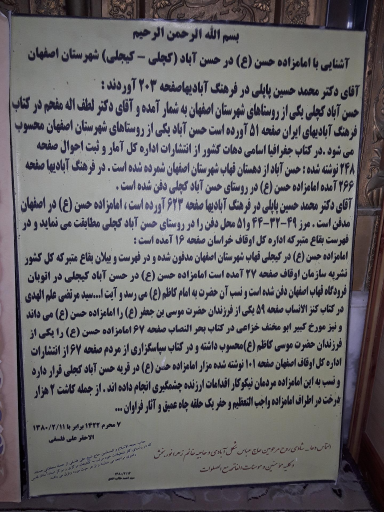 بسم الله الرحمن الرحیم
آشنایی با امامزاده حسن (ع) در حسن آباد (کچلی - کیجلی) شهرستان اصفهان
آقای دکتر محمد حسین پاپلی در فرهنگ آبادیهاصفحه ۲۰۳ آوردند :
حسن آباد کچلی یکی از روستاهای شهرستان اصفهان به شمار آمده و آقای دکتر لطف اله مفخم در کتاب
فرهنگ آبادیهای ایران صفحه ۵۱ آورده است حسن آباد یکی از روستاهای شهرستان اصفهان محسوب
می شود .در کتاب جغرافیا اسامی دهات کشور از انتشارات اداره کل آمار و ثبت احوال صفحه
۲۴۸ نوشته شده : حسن آباد از دهستان قهاب شهرستان اصفهان شمرده شده است . در فرهنگ آبادیها صفحه
۲۶۶ آمده امامزاده حسن (ع) در روستای حسن آباد کچلی دفن شده است .
آقای دکتر محمد حسین پاپلی در فرهنگ آبادیها صفحه ۶۲۳ آورده است ، امامزاده حسن (ع) در اصفهان
مدفن است . مرز ۴۹-۳۲-۴۴ و ۵۱ محل دفن را در روستای حسن آباد کچلی مطابقت می نماید و در
فهرست بقاع متبرکه اداره کل اوقاف خراسان صفحه ۱۶ آمده است :
امامزاده حسن (ع) در کیجلی قهاب شهرستان اصفهان مدفون شده و در فهرست و بیلان بقاع متبرکه کل کشور
نشریه سازمان اوقاف صفحه ۲۷ آمده است امامزاده حسن (ع) در حسن آباد کیجلی در اتوبان
فرودگاه قهاب اصفهان دفن شده است و نسب آن حضرت به امام کاظم (ع) می رسد و آیت ا...سید مرتضی علم الهدی
در کتاب کنز الانساب صفحه ۵۹ یکی از فرزندان حضرت موسی بن جعفر (ع) را امامزاده حسن (ع) می داند
و نیز مورخ کبیر ابو مخنف خزاعی در کتاب بحر النصاب صفحه ۶۷ امامزاده حسن (ع) را یکی از
فرزندان حضرت موسی کاظم (ع)محسوب داشته و در کتاب سپاسگزاری از مردم صفحه ۶۷ از انتشارات
اداره کل اوقاف اصفهان صفحه ۱۰۱ نوشته شده مزار امامزاده حسن (ع) در قریه حسن آباد کچلی قرار دارد
و نسب به این امامزاده مردمان نیکوکار اقدامات ارزنده چشمگیری انجام داده اند . از جمله کاشت ۲ هزار
درخت در اطراف امامزاده واجب التعظیم و حفر یک حلقه چاه عمیق و آثار فراوان ...
۷ محرم ۱۴۲۲ برابر با ۱۳۸۰/۲/۱۱
الاحقر علی فلسفی